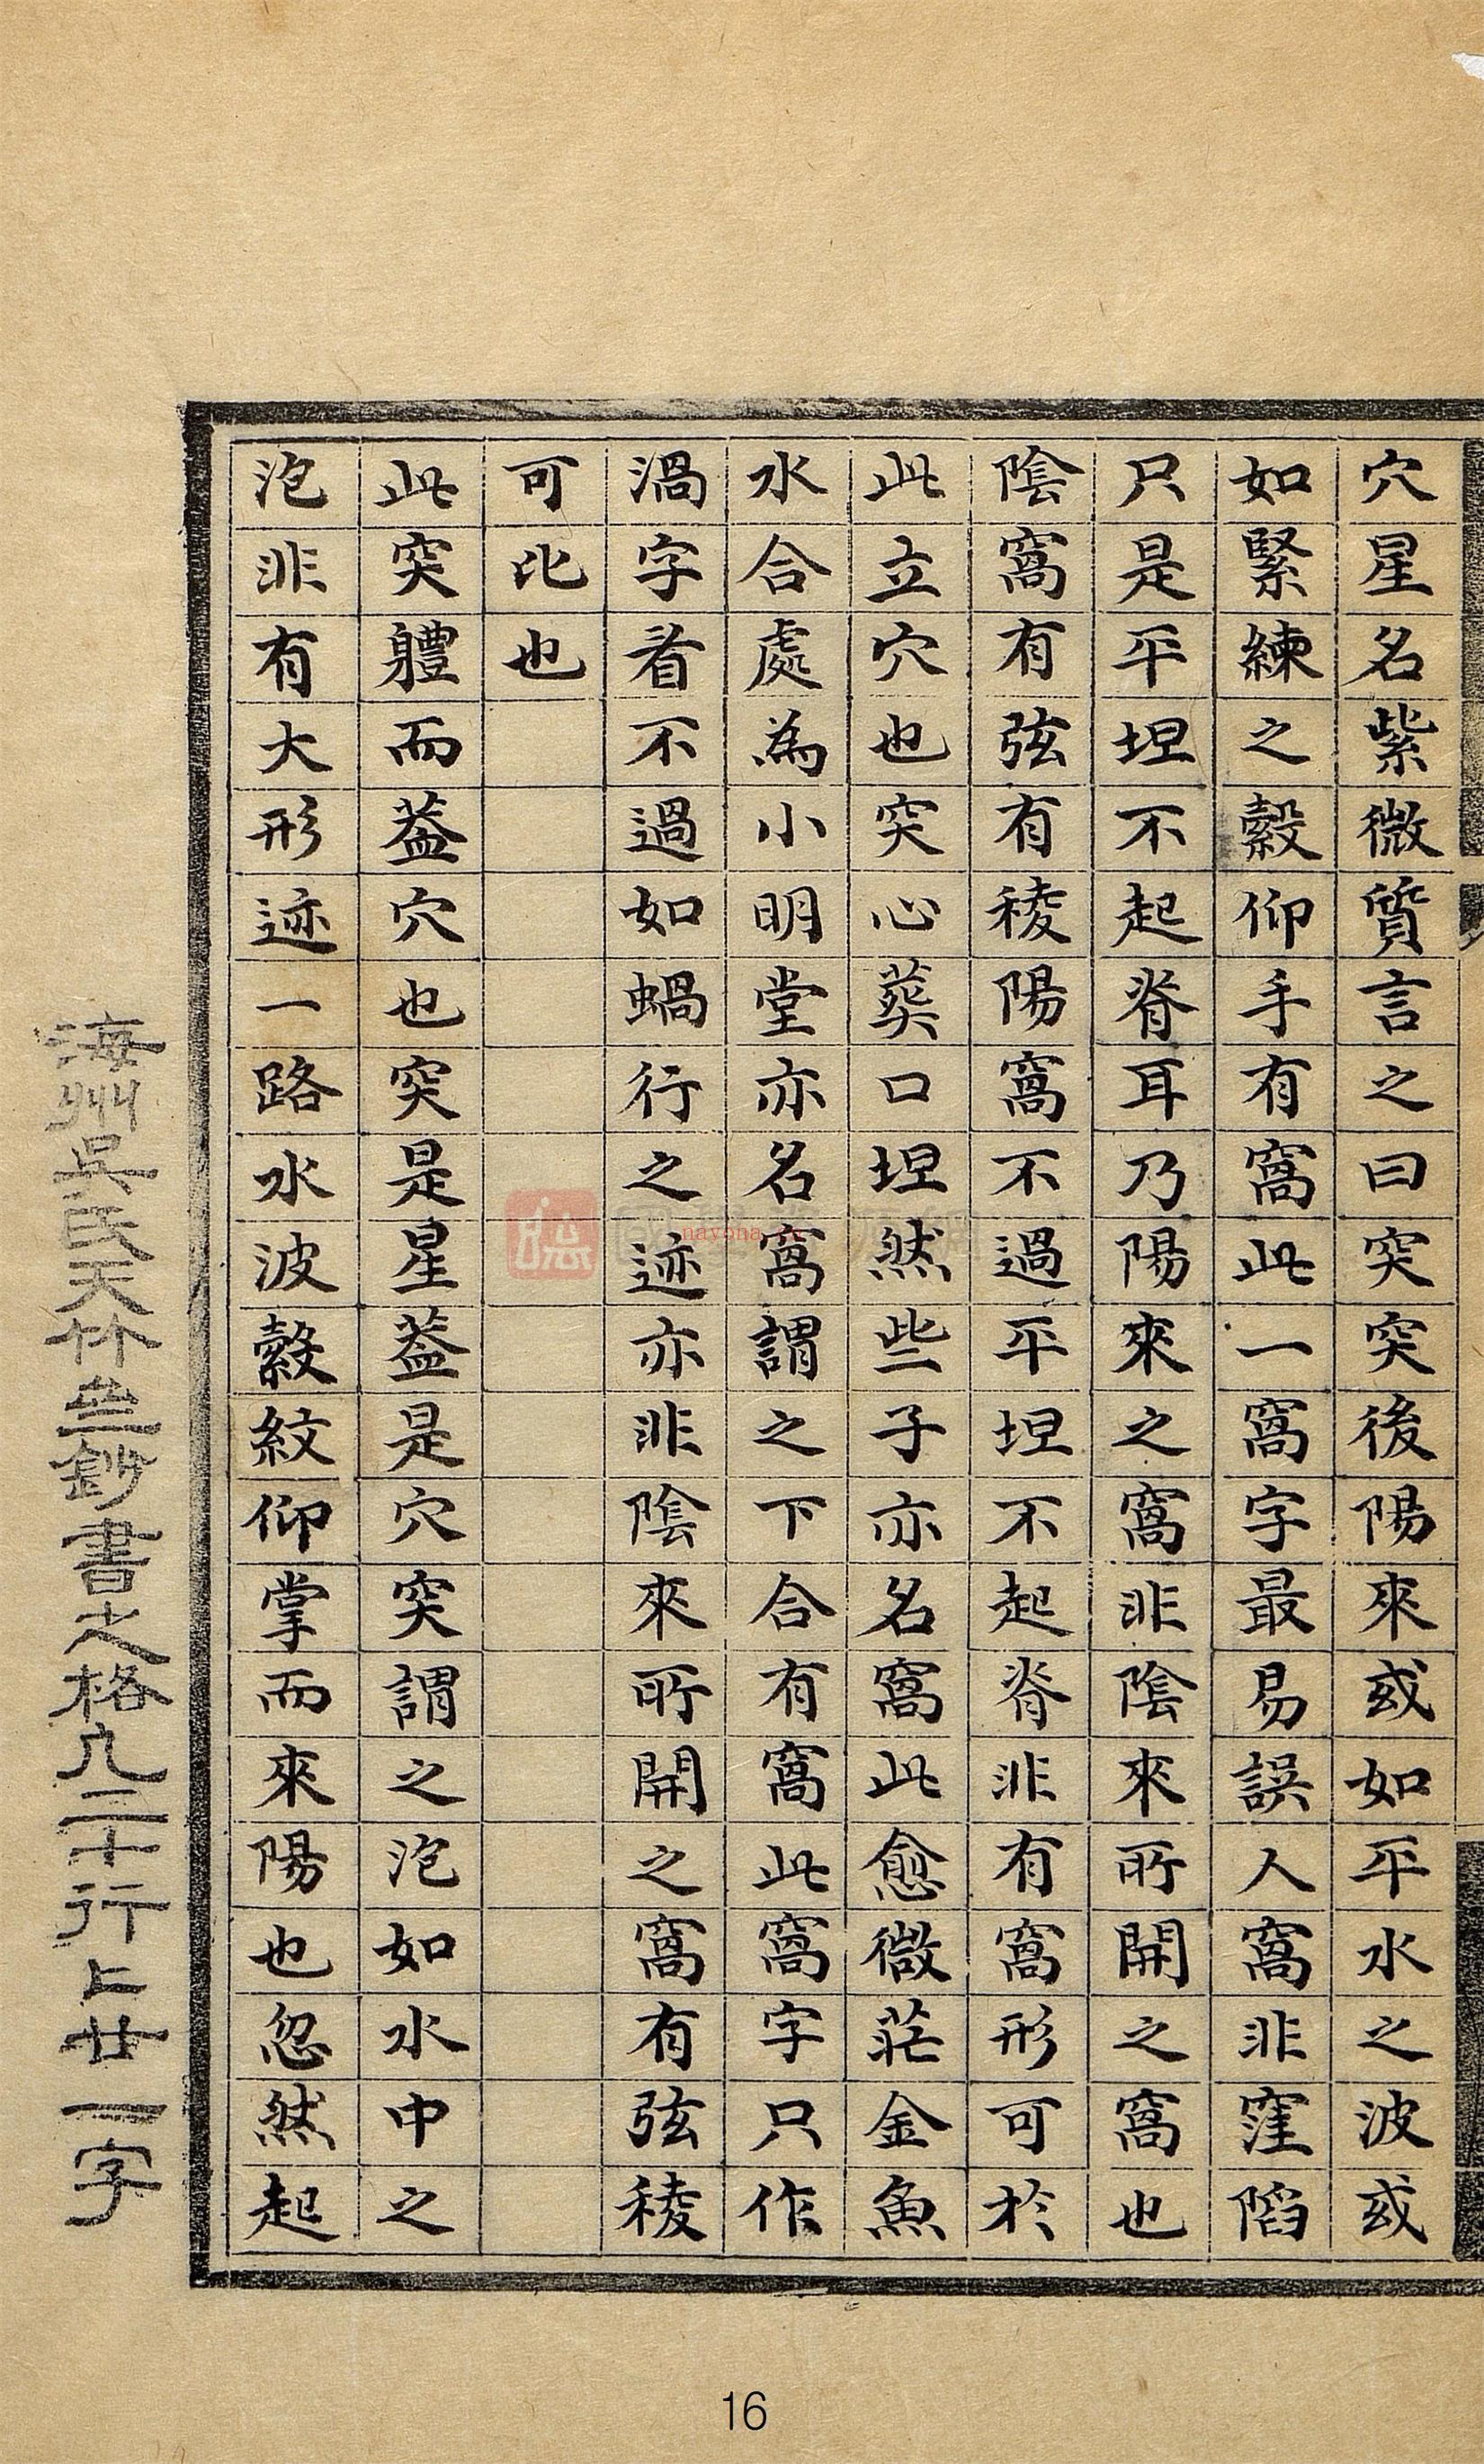 穴星名紫微質言之曰突突後陽來或如平水之波或
如緊練之縠仰手有窩此一窩字最易誤人窩非窪陷
只是平坦不起脊耳乃陽來之窩非陰來所開之窩也
陰窩有弦有稜陽窩不過平坦不起脊非有窩形可於
此立穴也突心葬口坦然些子亦名窩此愈微茫金魚
水合處為小明堂亦名窩謂之下合有窩此窩字只作
渦字看不過如蝸行之迹亦非陰來所開之窩有弦稜
可比也
此突軆而葢穴也突是星葢是穴突謂之泡如水中之
泡非有大形迹一路水波縠紋仰掌而來陽也忽然起
海州吳氏天竹盦鈔書之格凡二十行上廿一字
16